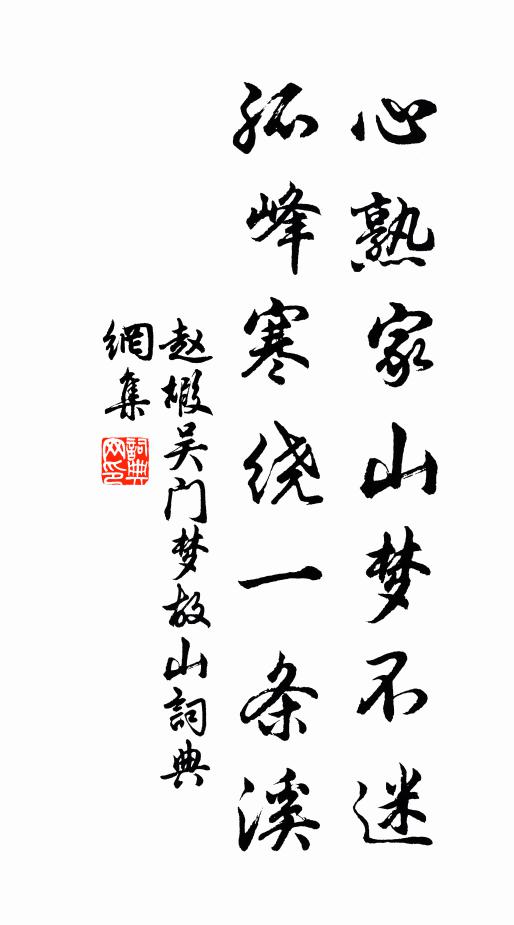 心熟家山梦不迷
孤峰寒绕一条溪
赵嘏吴门梦故山詞典
網集
詞典
网印